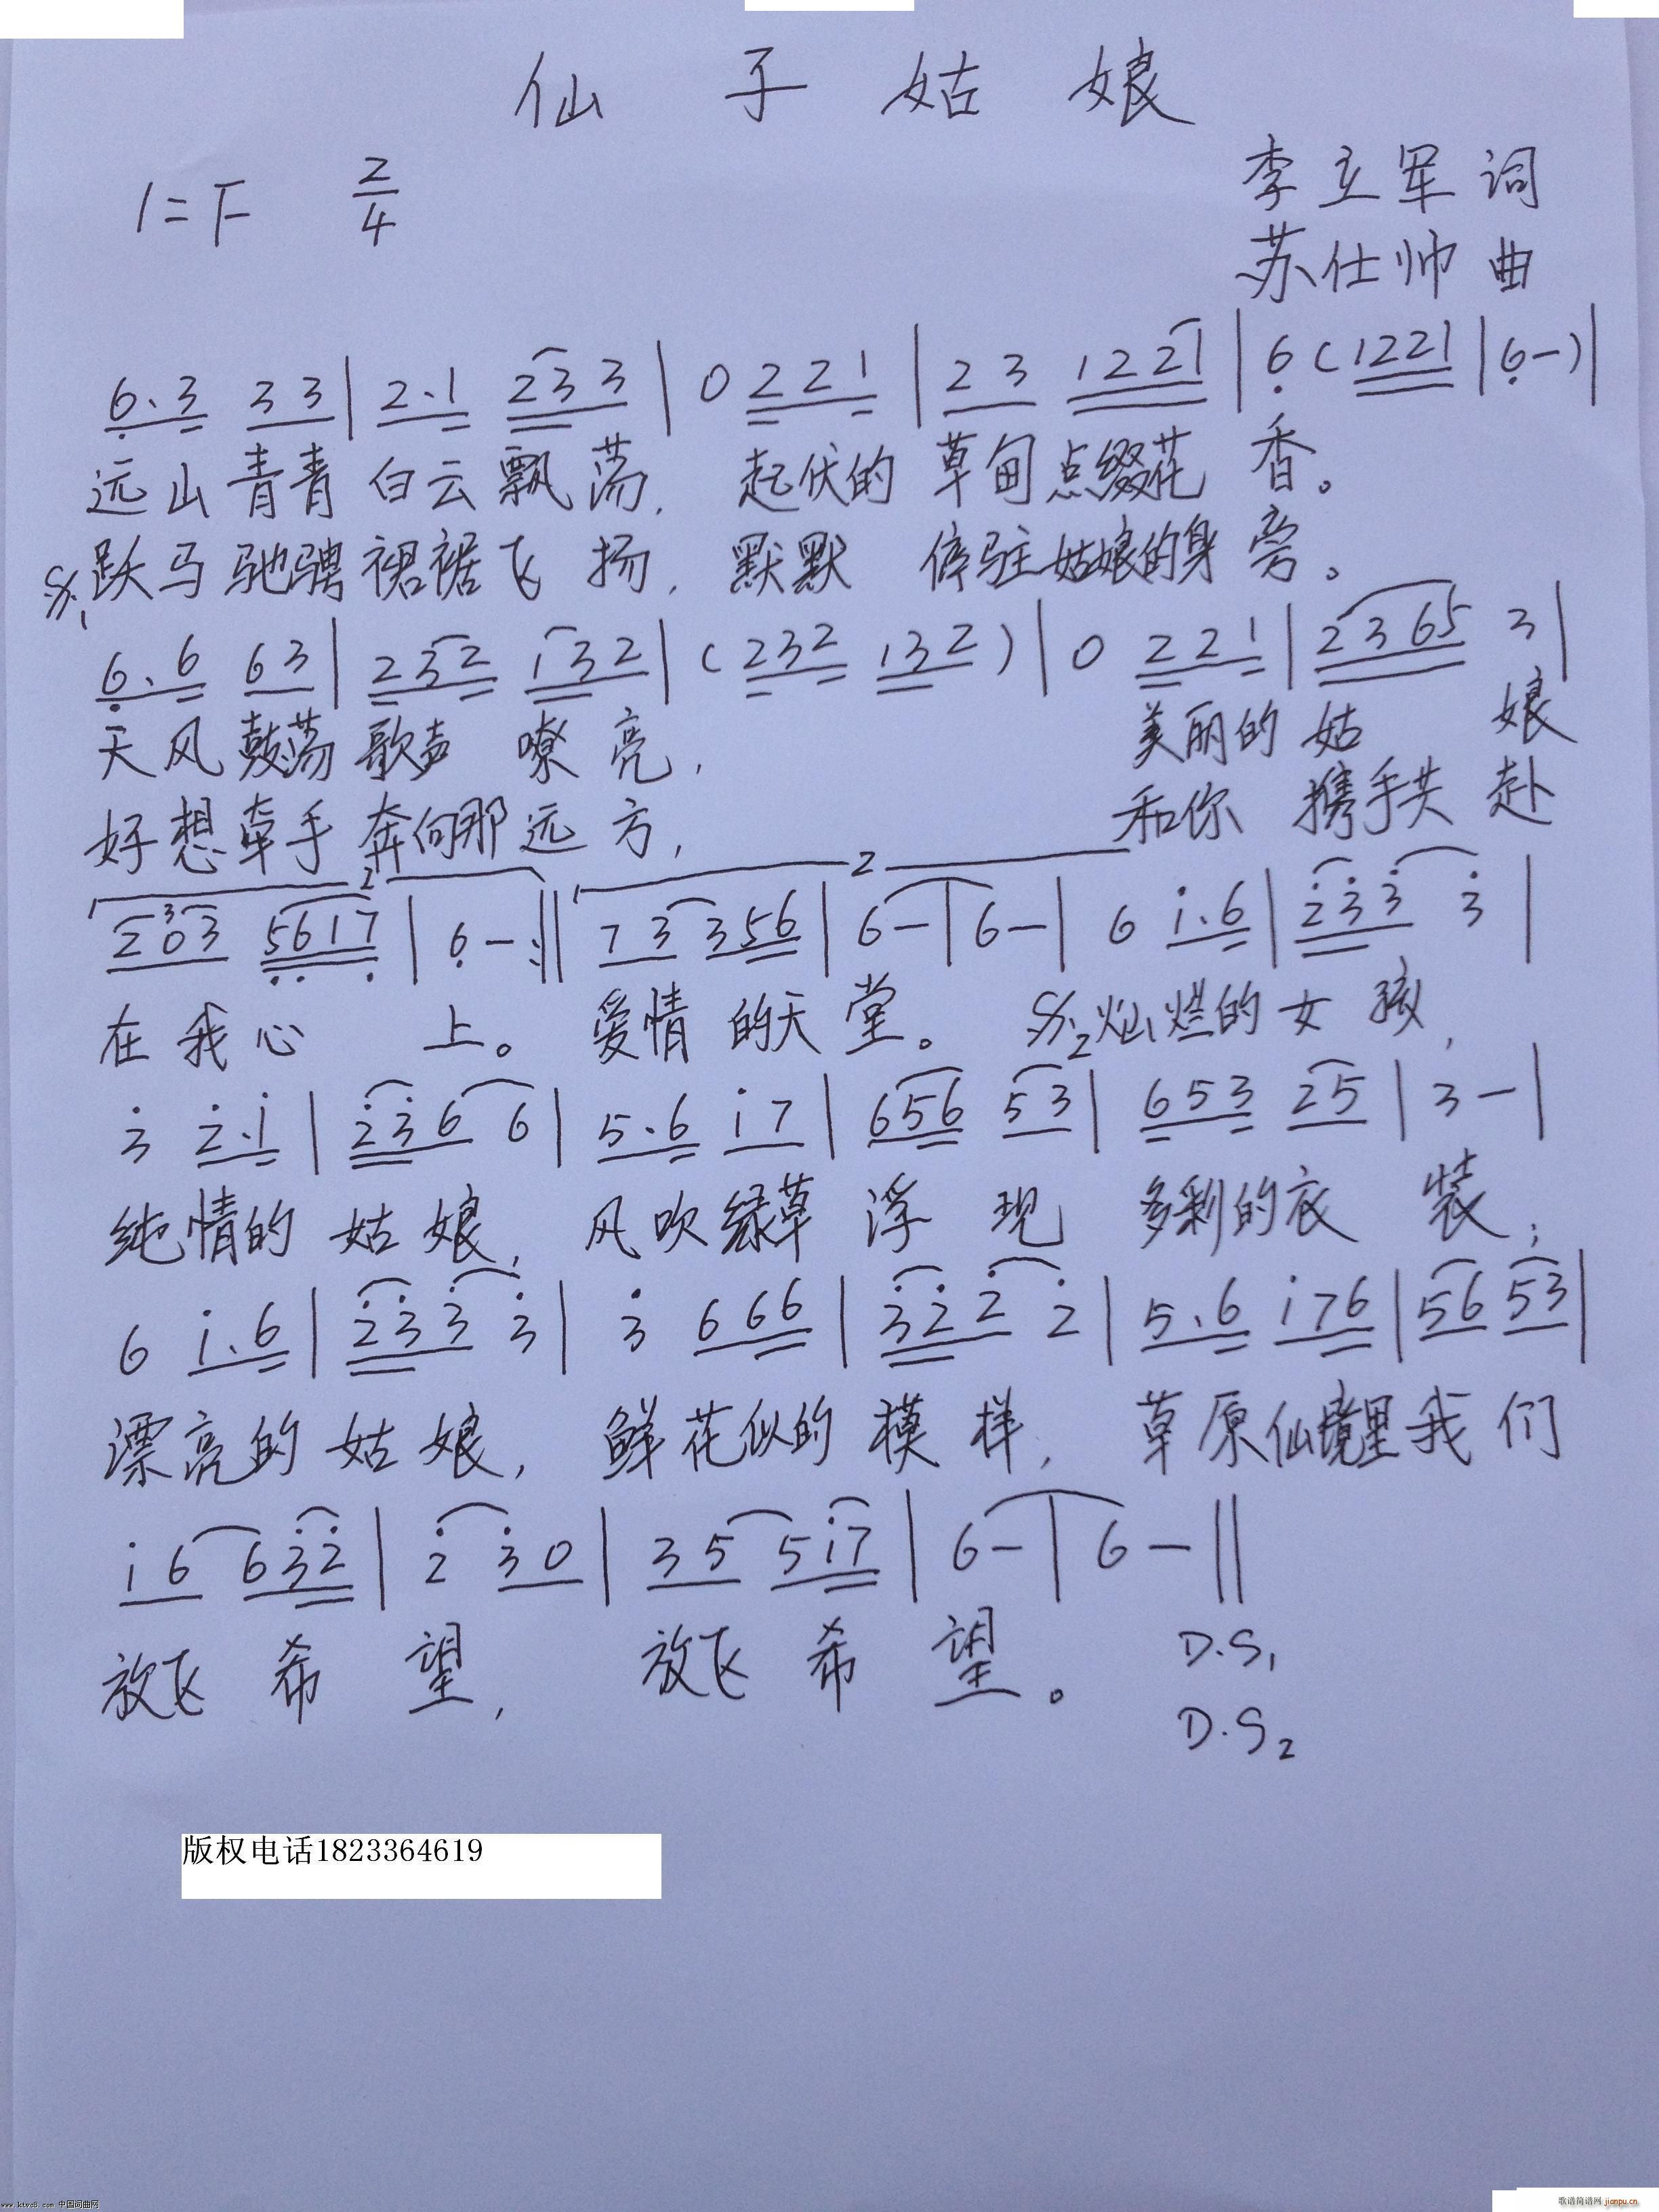 仙子姑娘
1=F 2/4
李立军 词
苏仕帅 曲
6.3 33|2.1 233|0 221|23 1221|6(1221|6-)|
远山青青白云飘荡,起伏的草甸点缀花香。
跃马驰骋裙裾飞扬,默默停驻姑娘的身旁。
6.6 63|232 132|(232 132)|0 221|2365 3|
天风鼓荡歌声嘹亮,美丽的姑娘
好想牵手奔向那远方,和你携手共赴
203 5617|6-:‖73 356|6-|6-|6 i.6|233 3|
在我心上。爱情的天堂。灿烂的女孩,
3 2.i|236 6|5.6 i7|656 53|653 25|3-|
纯情的姑娘,风吹绿草浮现多彩的衣装;
6 i.6|233 3|3 666|322 2|5.6 i76|56 53|
漂亮的姑娘,鲜花似的模样,草原仙境里我们
i6 632|2 30|35 5i7|6-|6-‖
放飞希望,放飞希望。
D.S1
D.S2
版权电话1823364619
www.ktvc8.com 中国词曲网
歌谱简谱网 jianpu.cn